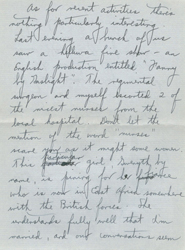 As for recent activities there's
nothing particularly interesting.
Last evening a bunch of us
saw a five - an
English production entitled "Fanny
by Gaslight". The regimental
surgeon and myself escorted 2 of
the nicest nurses from the
local hospital. Don't let the
mention of the word "nurses"
scare you as it might some wives.
This girl,
name, is pining for her
who is now in East Africa somewhere
with the British forces. She
understands fully well that I'm
married, and our conversations seem